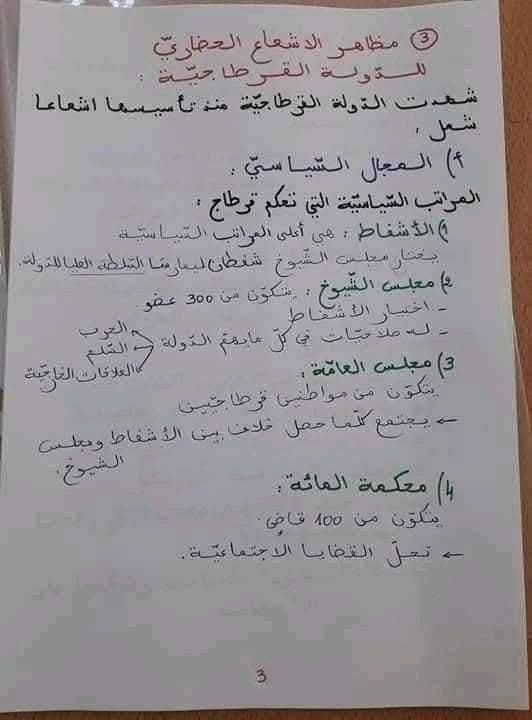 ③ مظاهر الاشعاع الحضاريّ
للدّولة القرطاجيّة :
شهدت الدّولة القرطاجيّة منذ تأسيسها اشعاعا
شمل :
أ) المجال السّياسيّ :
المراتب السّياسيّة التي تحكم قرطاج :
1) الأشفاط : هي أعلى المراتب السّياسيّة
يختار مجلس الشّيوخ شفطان ليمارسا السّلطة العليا للدولة.
2) مجلس الشّيوخ : يتكوّن من 300 عضو
- اختيار الأشفاط
- له صلاحيّات في كلّ ما يهمّ الدّولة
الحرب
السّلم
العلاقات الخارجيّة
3) مجلس العامّة :
يتكوّن من مواطنين قرطاجيّين
← يجتمع كلّما حصل خلاف بين الأشفاط ومجلس
الشيوخ.
4) محكمة المائة :
يتكوّن من 100 قاضٍ.
← تحلّ القضايا الاجتماعيّة.
3